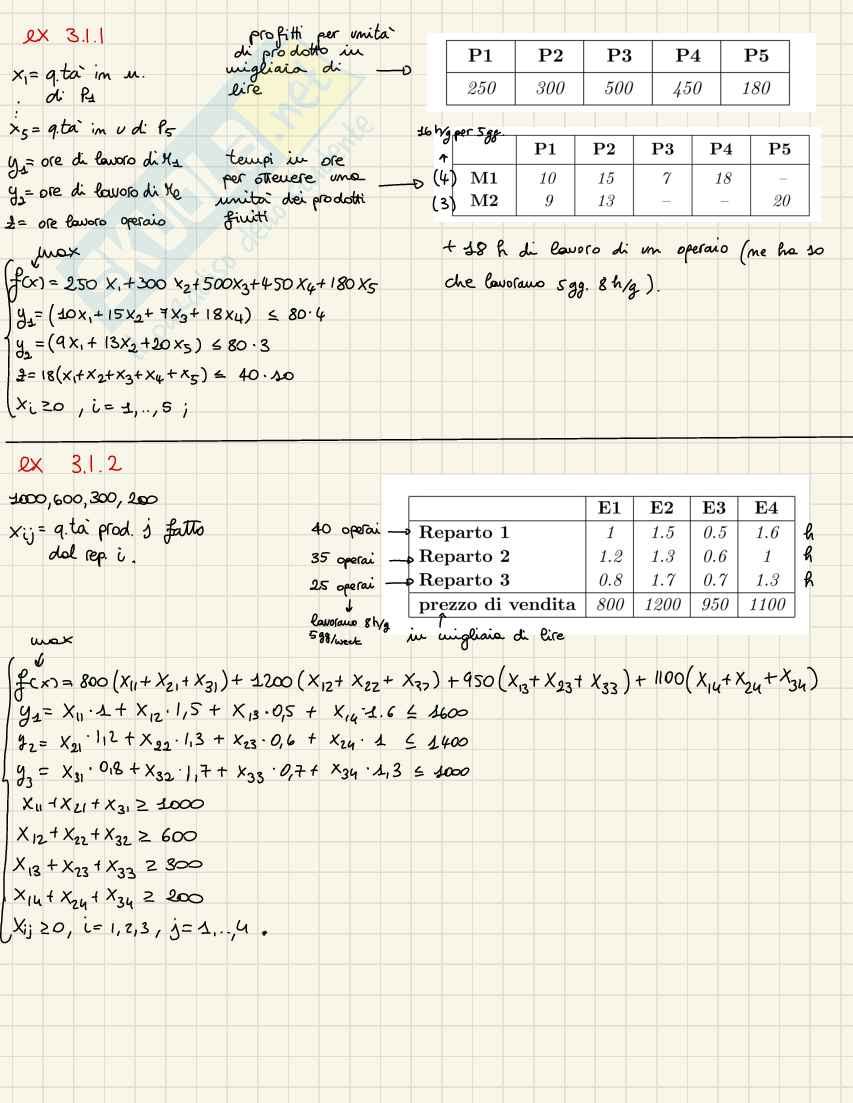 ex 3.1.1
x₁ = q.tà in u.
. di P₁
:
x₅ = q.tà in u di P₅
y₁ = ore di lavoro di M₁
y₂ = ore di lavoro di M₂
z = ore lavoro operaio
profitti per unità
di prodotto in
migliaia di
lire →
P1 P2 P3 P4 P5
250 300 500 450 180
tempi in ore
per ottenere una
unità dei prodotti
finiti →
16 h/g per 5gg.
↑
P1 P2 P3 P4 P5
(4) M1 10 15 7 18 –
(3) M2 9 13 – – 20
+ 18 h di lavoro di un operaio (ne ha 10
che lavorano 5gg. 8h/g).
max
f(x) = 250 x₁ + 300 x₂ + 500x₃ + 450 x₄ + 180 x₅
y₁ = (10x₁ + 15x₂ + 7x₃ + 18x₄) ≤ 80·4
y₂ = (9x₁ + 13x₂ + 20x₅) ≤ 80·3
z = 18(x₁+x₂+x₃+x₄+x₅) ≤ 40·10
xᵢ ≥ 0 , i = 1,..,5 ;
ex 3.1.2
1000, 600, 300, 200
xᵢⱼ = q.tà prod. j fatto
dal rep. i.
E1 E2 E3 E4
40 operai → Reparto 1 1 1.5 0.5 1.6 h
35 operai → Reparto 2 1.2 1.3 0.6 1 h
25 operai → Reparto 3 0.8 1.7 0.7 1.3 h
prezzo di vendita 800 1200 950 1100
lavorano 8h/g
5gg/week
in migliaia di lire
max
f(x) = 800(x₁₁ + x₂₁ + x₃₁) + 1200(x₁₂ + x₂₂ + x₃₂) + 950(x₁₃ + x₂₃ + x₃₃) + 1100(x₁₄ + x₂₄ + x₃₄)
y₁ = x₁₁·1 + x₁₂·1,5 + x₁₃·0,5 + x₁₄·1.6 ≤ 1600
y₂ = x₂₁·1,2 + x₂₂·1,3 + x₂₃·0,6 + x₂₄·1 ≤ 1400
y₃ = x₃₁·0,8 + x₃₂·1,7 + x₃₃·0,7 + x₃₄·1,3 ≤ 1000
x₁₁ + x₂₁ + x₃₁ ≥ 1000
x₁₂ + x₂₂ + x₃₂ ≥ 600
x₁₃ + x₂₃ + x₃₃ ≥ 300
x₁₄ + x₂₄ + x₃₄ ≥ 200
xᵢⱼ ≥ 0, i = 1,2,3, j = 1,..,4 .